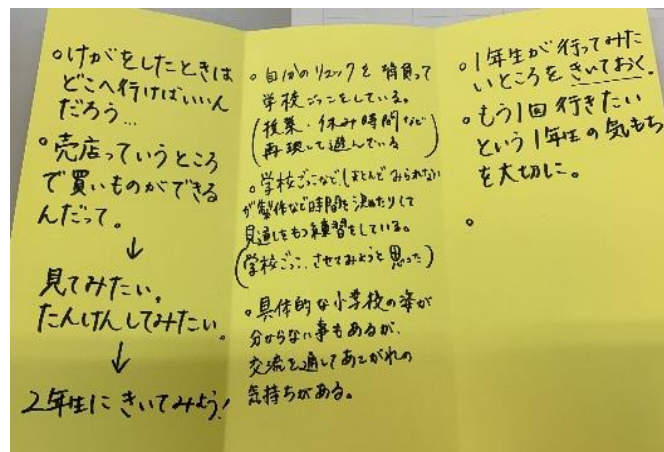 ○けがをしたときは
どこへ行けばいいん
だろう…
○売店っていうところ
で買いものができる
んだって。
↓
見てみたい。
たんけんしてみたい。
↓
2年生にきいてみよう!
○自分のリュックを背負って
学校ごっこをしている。
(授業、休み時間など
再現して遊んでいる)
○学校ごっこなどはほとんどみられない
が製作など時間を決めたりして
見通しをもつ練習をしている。
(学校ごっこ、させてみようと思った)
○具体的な小学校の姿が
分からない事もあるが、
交流を通してあこがれの
気持ちがある。
○1年生が行ってみた
いところをきいておく。
○もう1回行きたい
という1年生の気もち
を大切に。
○